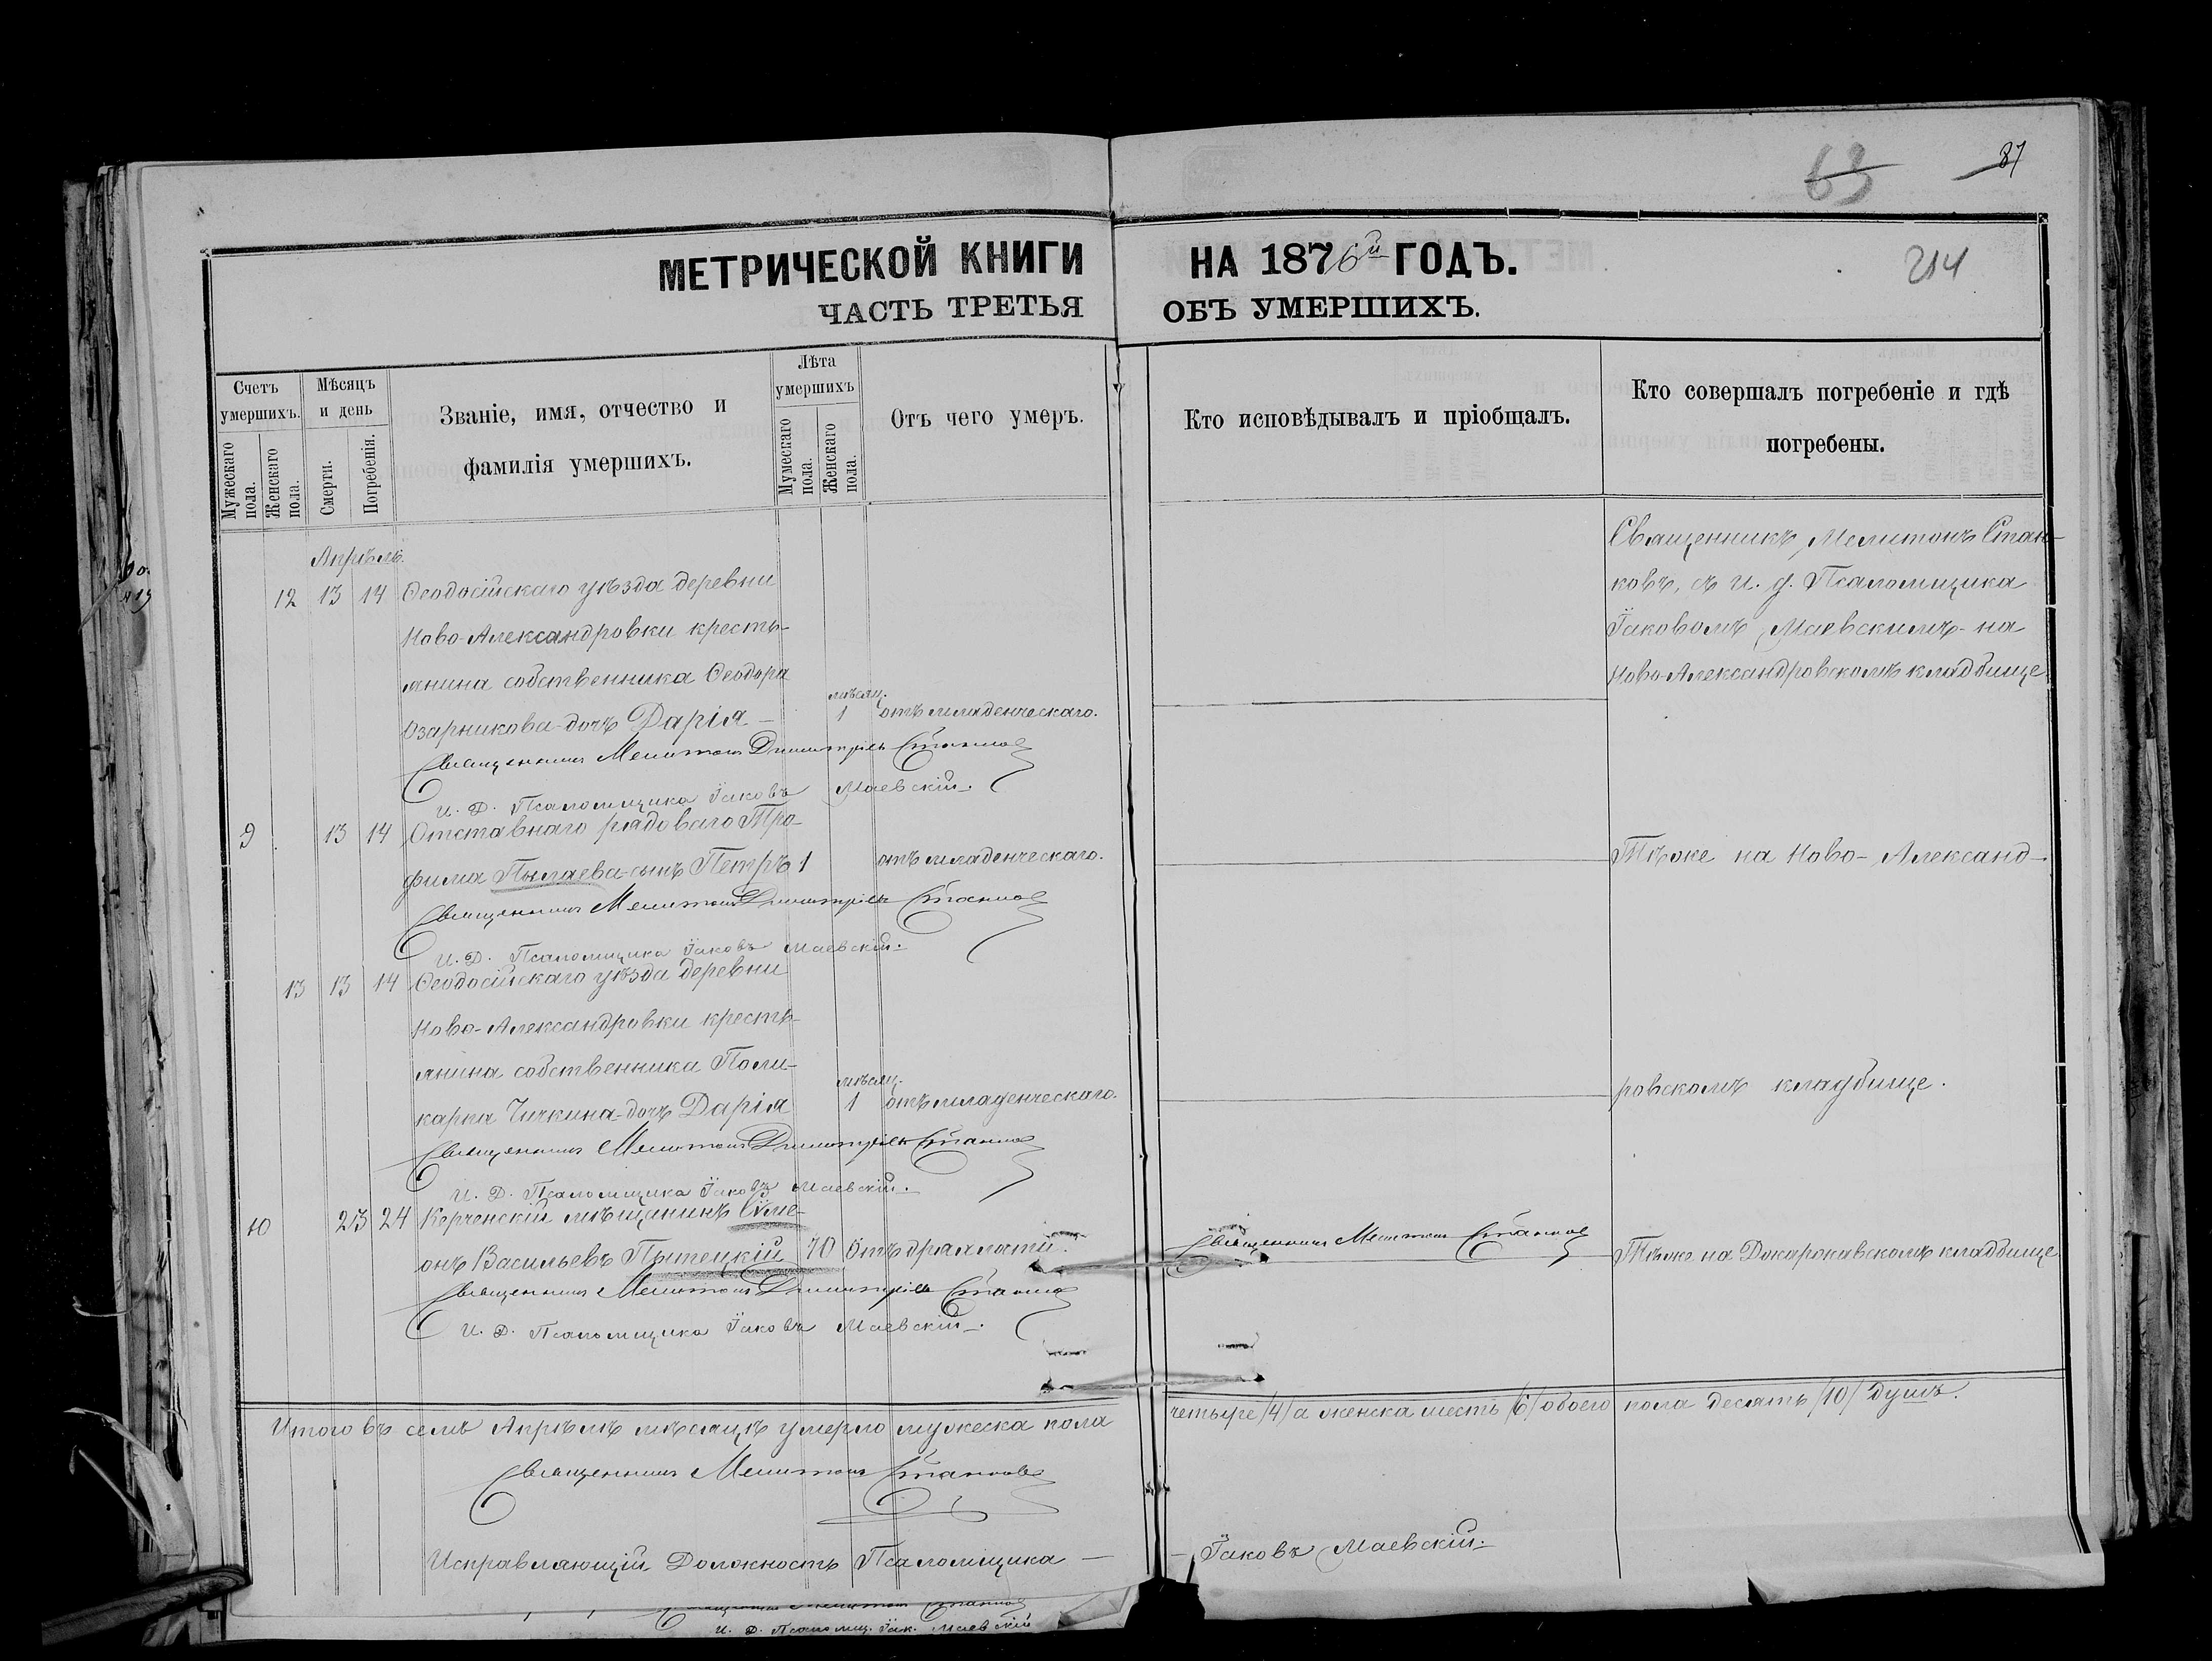 63 87
МЕТРИЧЕСКОЙ КНИГИ НА 1876й ГОДЪ.
214
ЧАСТЬ ТРЕТЬЯ ОБЪ УМЕРШИХЪ.
Счетъ умершихъ.
Мужескаго пола.
Женскаго пола.
Мѣсяцъ и день
Смерти.
Погребенія.
Званіе, имя, отчество и
фамилія умершихъ.
Лѣта умершихъ
Мужескаго пола.
Женскаго пола.
Отъ чего умеръ.
Кто исповѣдывалъ и пріобщалъ.
Кто совершалъ погребеніе и гдѣ
погребены.
Апрѣль.
12 13 14 Ѳеодосійскаго уѣзда деревни
Ново-Александровки кресть-
янина собственника Ѳеодора
Озарникова-дочь Дарія — мѣсяц. 1 отъ младенческаго.
Священникъ Мелитонъ Стан-
ковъ, съ и. д. Псаломщика
Іаковомъ Маевскимъ на
Ново-Александровскомъ кладбище
Священникъ Мелитонъ Димитріевъ Станковъ
И. Д. Псаломщика Іаковъ Маевскій.
9 13 14 Отставнаго рядоваго Тро-
фима Пылаева-сынъ Петръ 1 отъ младенческаго. Тѣже на Ново-Александ-
Священникъ Мелитонъ Димитріевъ Станковъ
И. Д. Псаломщика Іаковъ Маевскій.
13 13 14 Ѳеодосійскаго уѣзда деревни
Ново-Александровки кресть-
янина собственника Поли-
карпа Чичкина-дочь Дарія мѣсяц. 1 отъ младенческаго. ровскомъ кладбище.
Священникъ Мелитонъ Димитріевъ Станковъ
И. Д. Псаломщика Іаковъ Маевскій.
10 23 24 Керченскій мѣщанинъ Сѵме-
онъ Васильевъ Пытецкій 70 Отъ дряхлости. Священникъ Мелитонъ Станковъ Тѣже на кладбище
Священникъ Мелитонъ Димитріевъ Станковъ
И. Д. Псаломщика Іаковъ Маевскій.
Итого въ семъ Апрѣлѣ мѣсяцѣ умерло мужеска пола четыре /4/ а женска шесть /6/ обоего пола десять /10/ душъ.
Священникъ Мелитонъ Станковъ
Исправляющій Должность Псаломщика — — Іаковъ Маевскій.
И. Д. Псаломщ. Іак. Маевскій